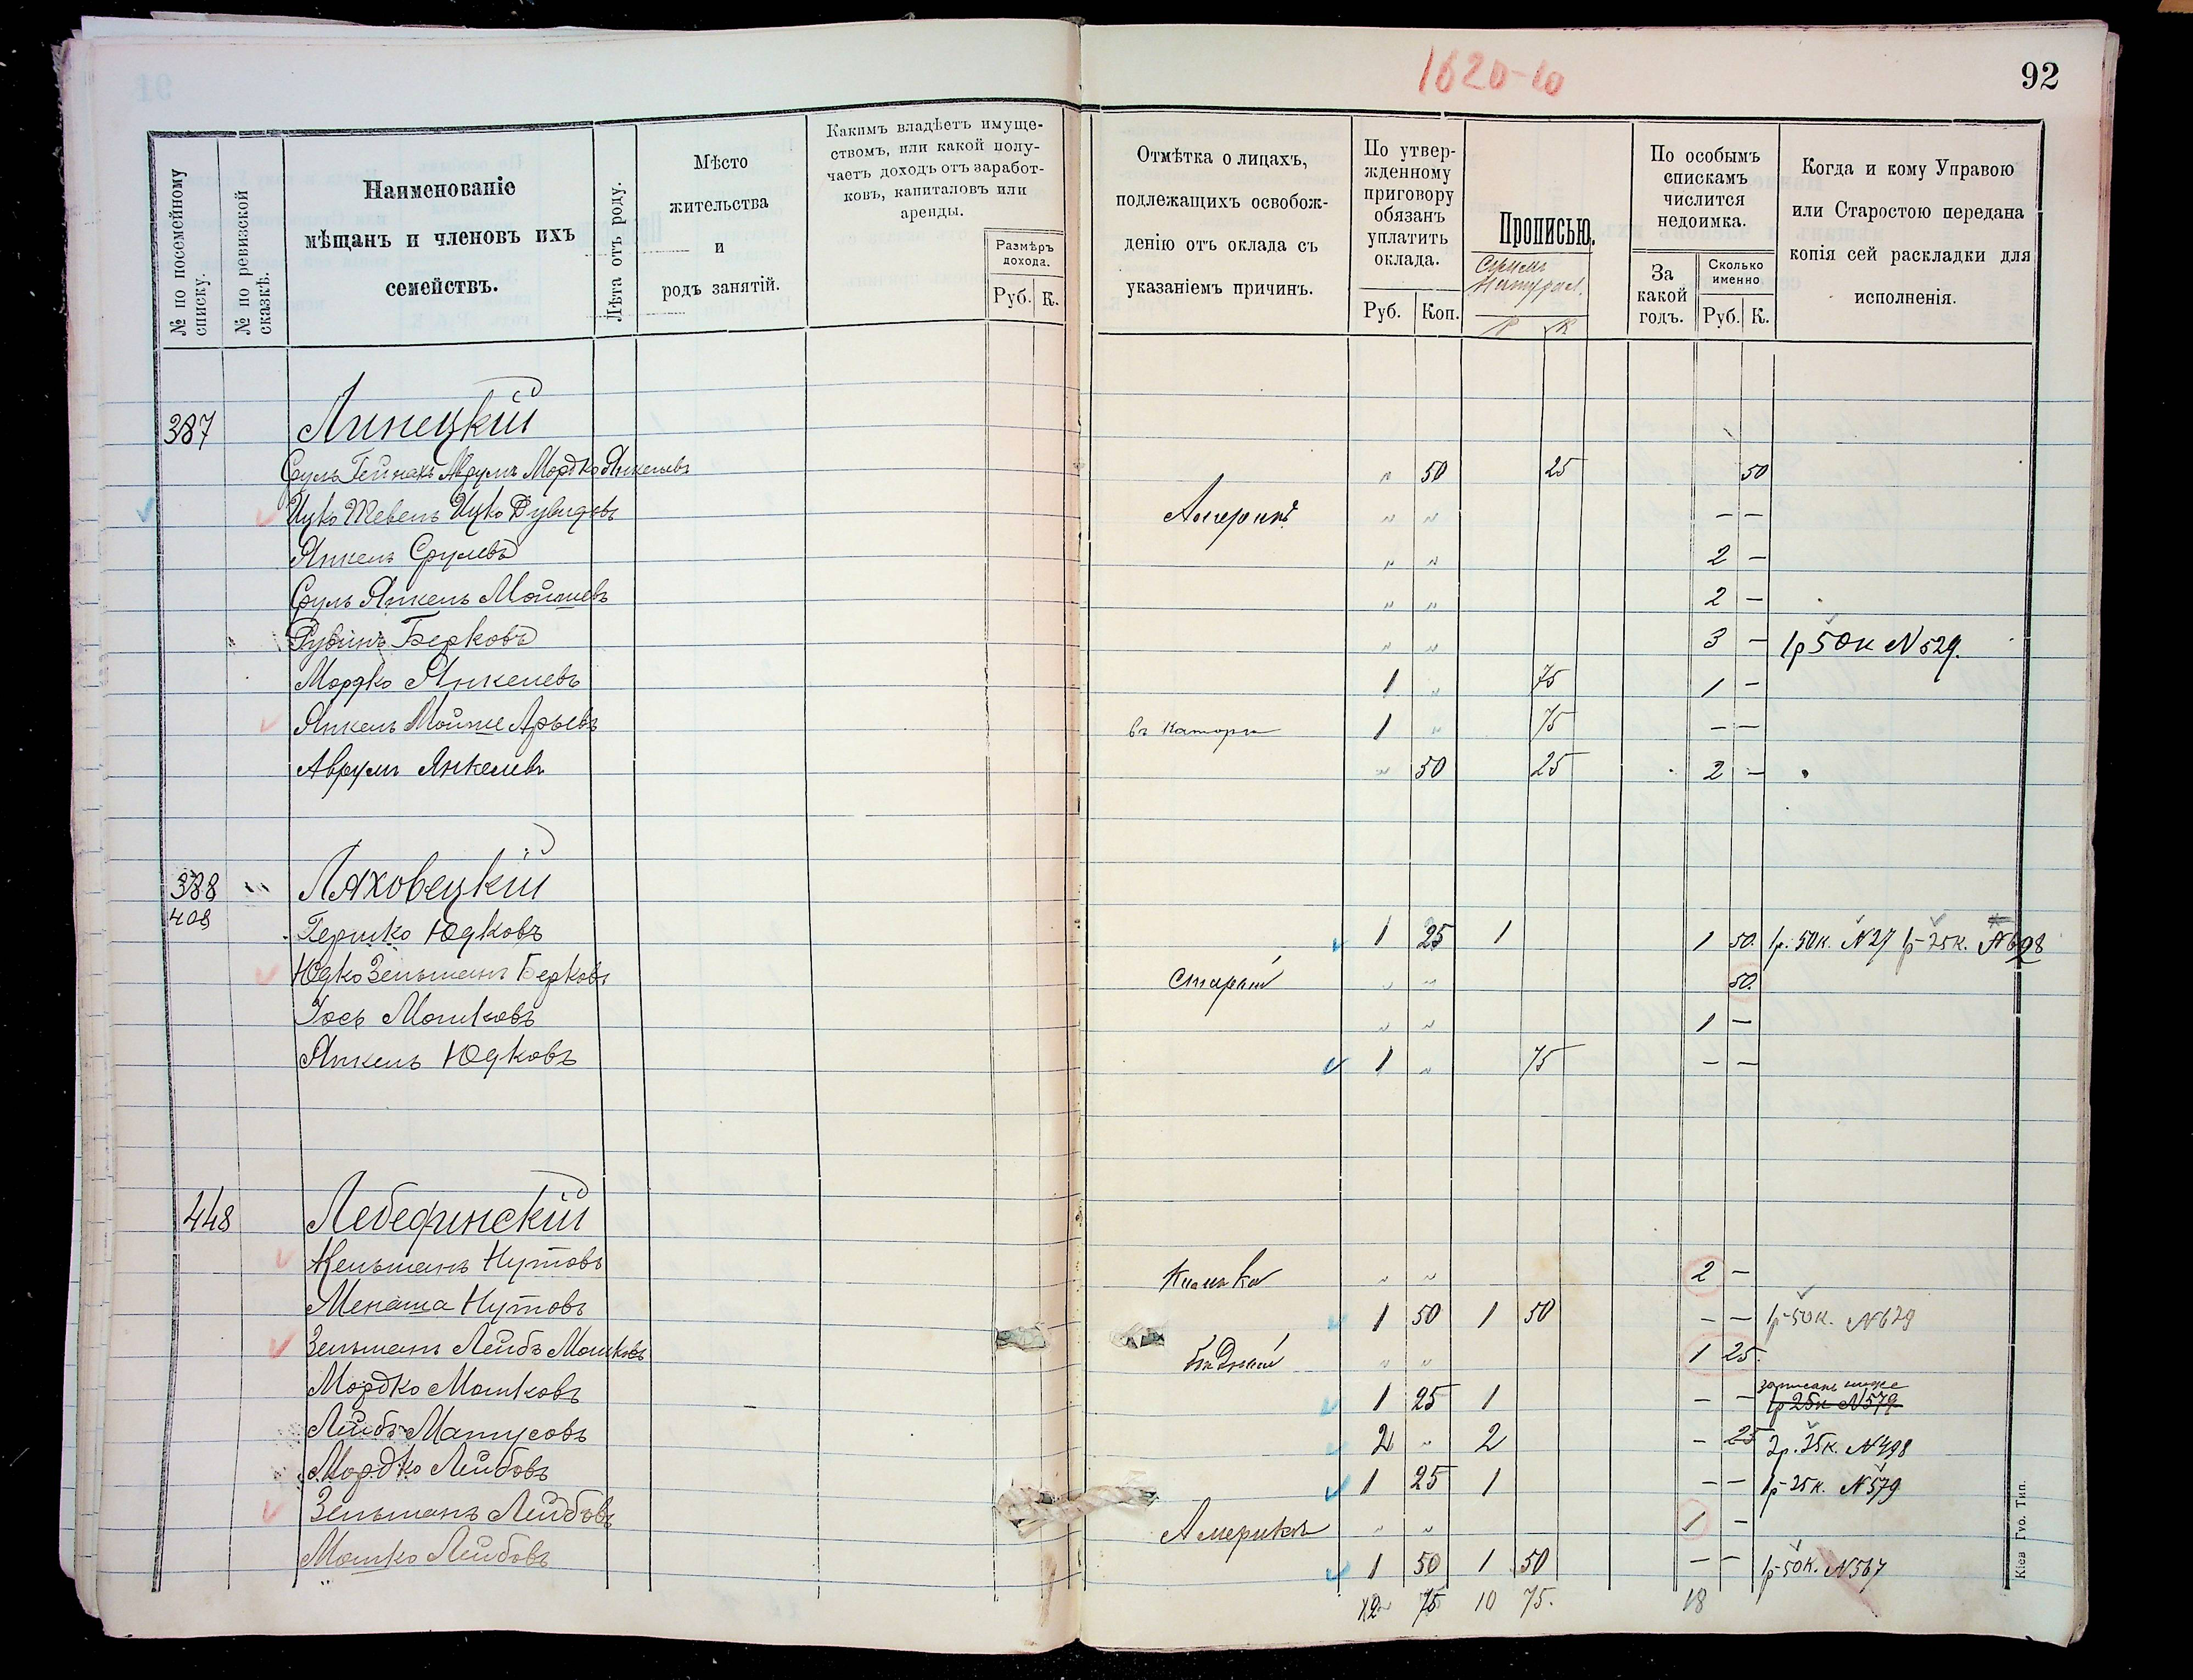 1620-10
92
№ по посемейному списку.
№ по ревизской сказкѣ.
Наименованіе
мѣщанъ и членовъ ихъ
семействъ.
Лѣта отъ роду.
Мѣсто
жительства
и
родъ занятій.
Какимъ владѣетъ имуще-
ствомъ, или какой полу-
чаетъ доходъ отъ заработ-
ковъ, капиталовъ или
аренды.
Размѣръ
дохода.
Руб. К.
Отмѣтка о лицахъ,
подлежащихъ освобож-
денію отъ оклада съ
указаніемъ причинъ.
По утвер-
жденному
приговору
обязанъ
уплатить
оклада.
Руб. Коп.
Прописью.
Р К
По особымъ
спискамъ
числится
недоимка.
За
какой
годъ.
Сколько
именно
Руб. К.
Когда и кому Управою
или Старостою передана
копія сей раскладки для
исполненія.
387 Линецкій
Сруль Гейнахъ Аврумъ Мордко Янкелевъ " 50 25 50
Ицко Тевель Ицко Дувидовъ " " — —
Янкель Срулевъ " " 2 —
Сруль Янкель Мойшевъ " " 2 —
Рувинъ Берковъ " " 3 — 1р 50к N 529.
Мордко Янкелевъ 1 " 75 1 —
Янкель Мойше Арьевъ въ каторгѣ 1 " 75 — —
Аврумъ Янкелевъ " 50 25 2 —
388 Ляховецкій
408
Гершко Юдковъ 1 25 1 1 50. 1р. 50к. N 27 1р-25к. N 698
Юдко Зельманъ Берковъ Старый " " 50.
Іось Мошковъ " " 1 —
Янкель Юдковъ 1 " 75 — —
448 Лебединскій
Кельманъ Нутовъ Калѣка " " 2 —
Менаша Нутовъ 1 50 1 50 — — 1р-50к. N 629
Зельманъ Лейбъ Мошковъ бѣдный " " 1 25.
записанъ ниже
Мордко Мошковъ 1 25 1 — — 1р 25к N 579
Лейбъ Матусовъ 2 " 2 — 25 2р. 25к. N 498
Мордко Лейбовъ 1 25 1 — — 1р-25к. N 579
Зельманъ Лейбовъ Америкѣ " " 1 —
Мошко Лейбовъ 1 50 1 50 — — 1р-50к. N 567
12 75 10 75. 18
Кіев Гуо. Тип.